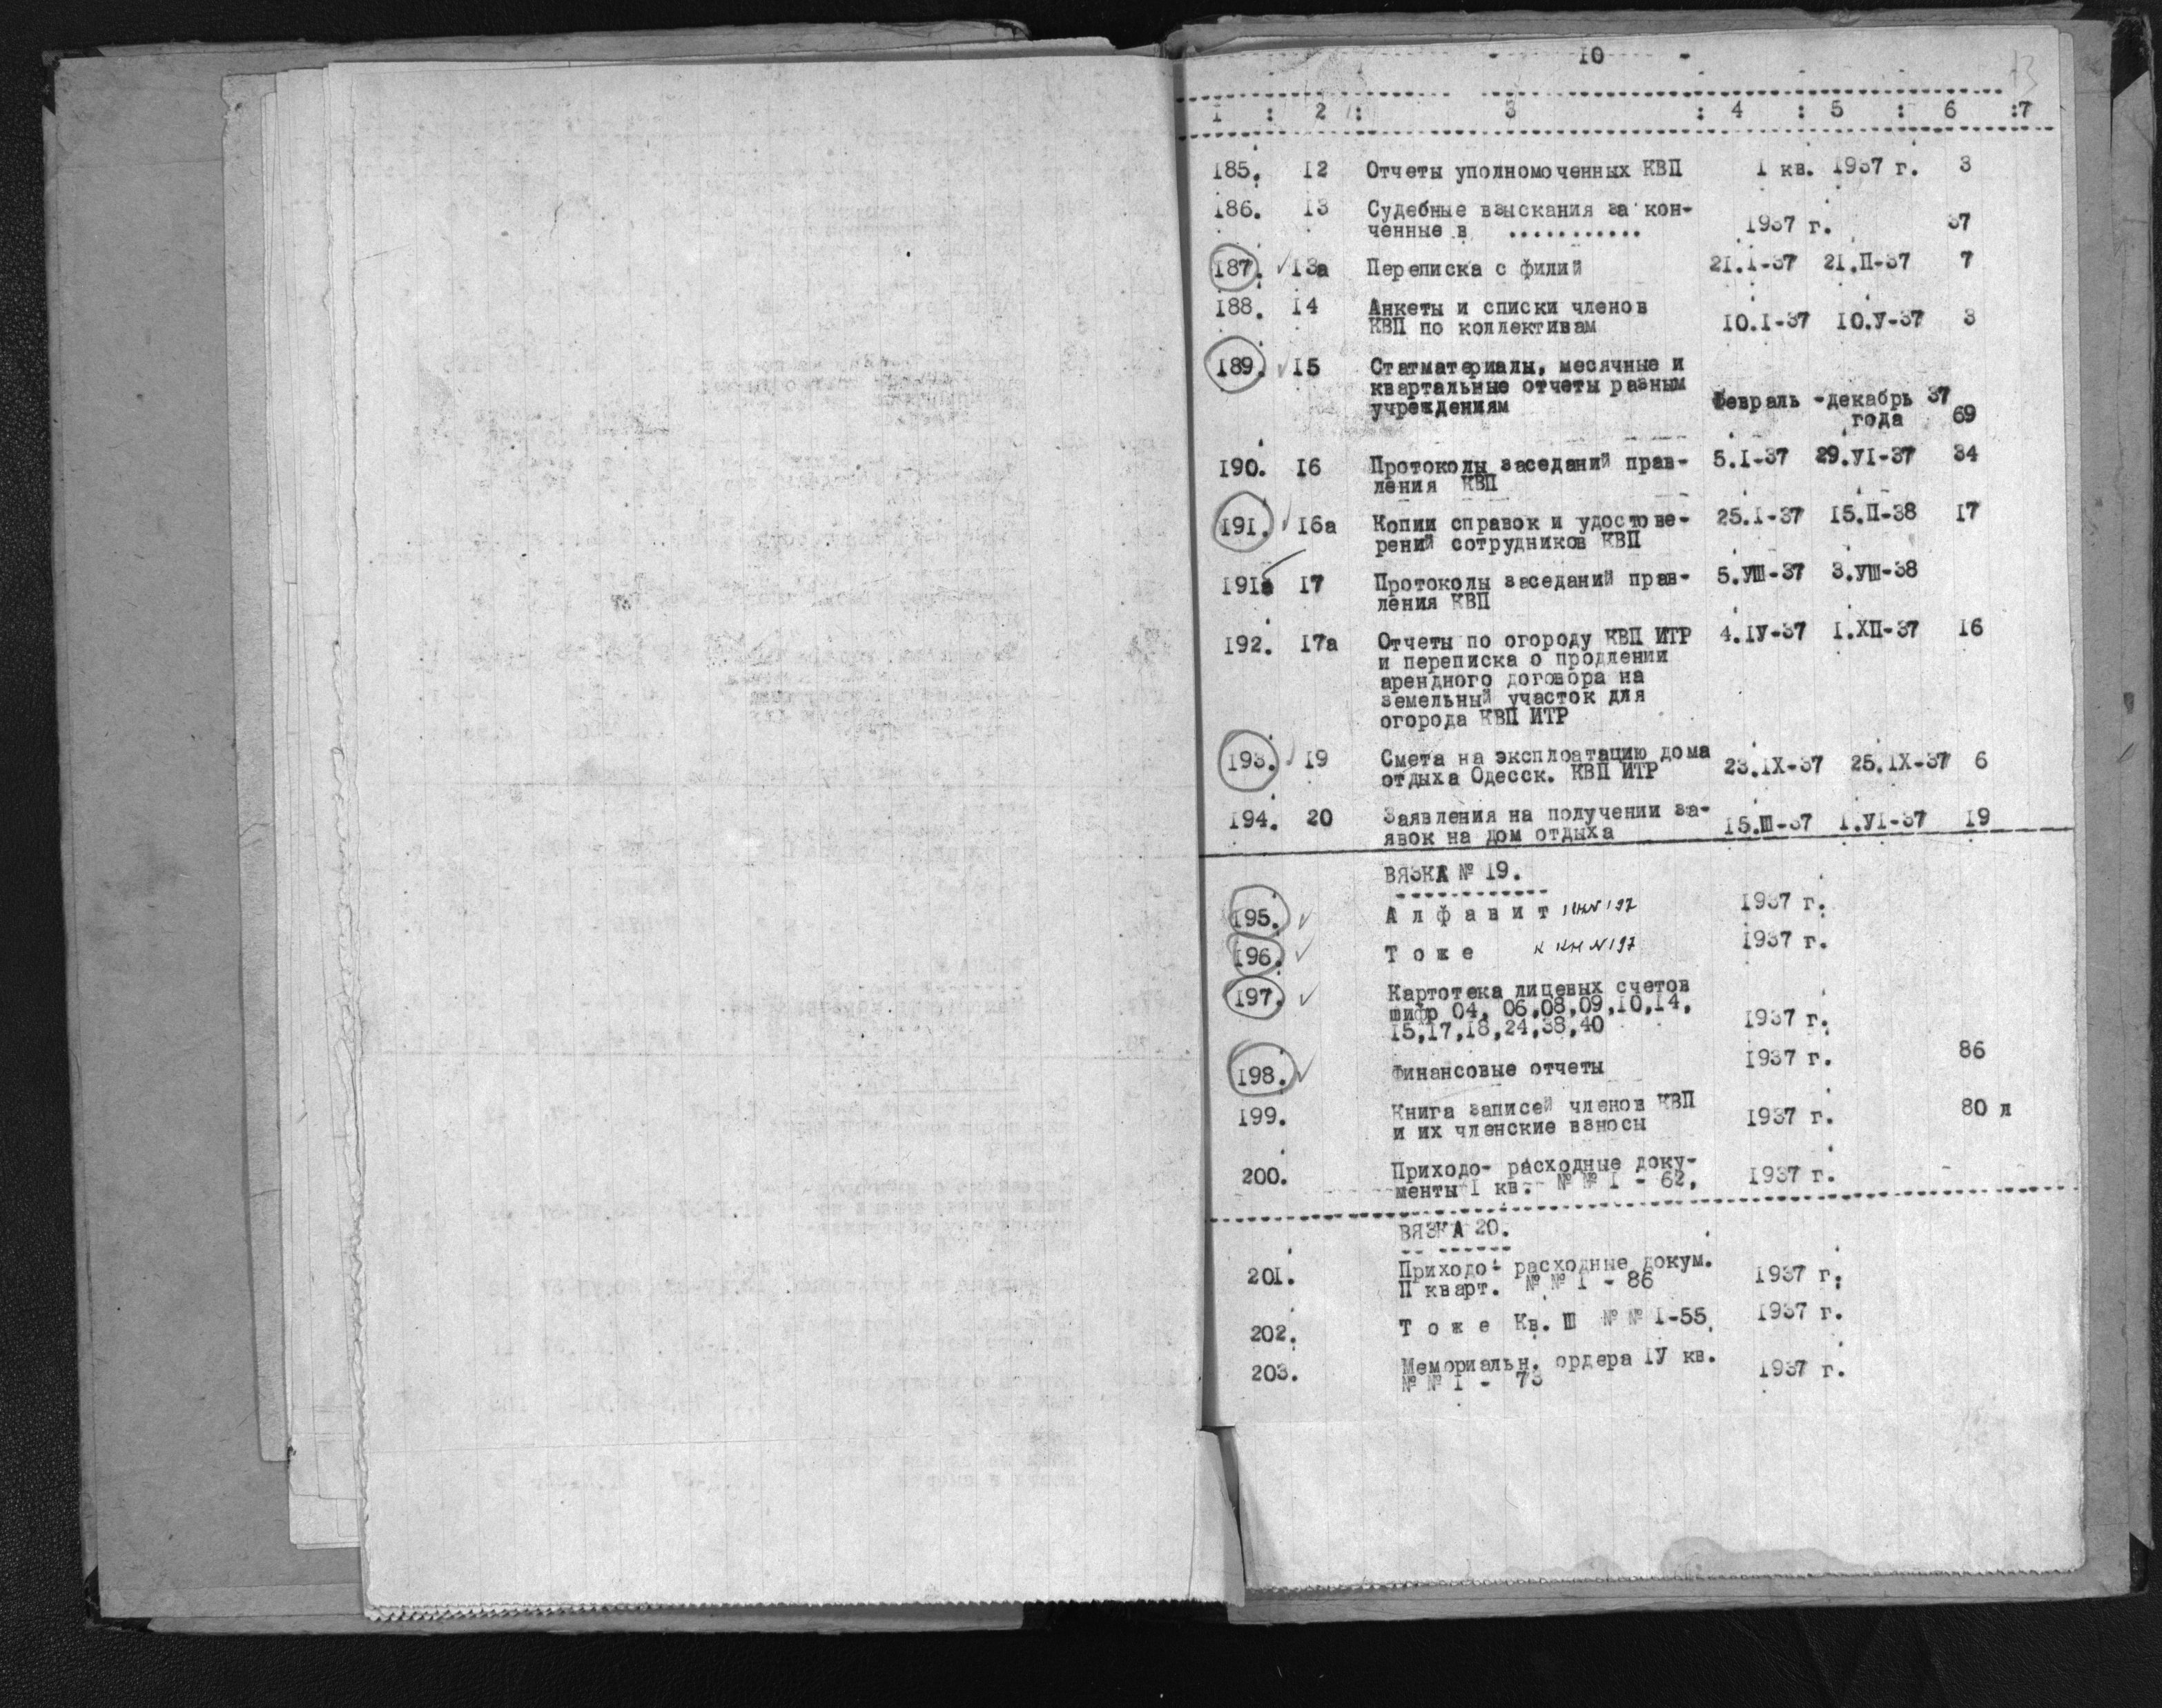 - 10 -
13
1 : 2 : 3 : 4 : 5 : 6 :7
185. 12 Отчеты уполномоченных КВП 1 кв. 1937 г. 3
186. 13 Судебные взыскания за кон-
ченные в ........... 1937 г. 37
187. 13а Переписка с филий 21.I-37 21.П-37 7
188. 14 Анкеты и списки членов
КВП по коллективам 10.I-37 10.У-37 3
189. 15 Статматериалы, месячные и
квартальные отчеты разным
учреждениям Февраль -декабрь 37
года 69
190. 16 Протоколы заседаний прав- 5.I-37 29.УI-37 34
ления КВП
191. 16а Копии справок и удостове- 25.I-37 15.П-38 17
рений сотрудников КВП
191а 17 Протоколы заседаний прав- 5.УШ-37 3.УШ-38
ления КВП
192. 17а Отчеты по огороду КВП ИТР 4.IУ-37 I.ХП-37 16
и переписка о продлении
арендного договора на
земельный участок для
огорода КВП ИТР
193. 19 Смета на эксплоатацию дома
отдыха Одесск. КВП ИТР 23.IХ-37 25.IХ-37 6
194. 20 Заявления на получении за-
явок на дом отдыха 15.Ш-37 I.УI-37 19
ВЯЗКА № 19.
195. А л ф а в и т 1937 г.
196. Т о ж е к ин N 197 1937 г.
197. Картотека лицевых счетов
шифр 04, 06,08,09,10,14,
15,17,18,24,38,40 1937 г.
198. Финансовые отчеты 1937 г. 86
199. Книга записей членов КВП
и их членские взносы 1937 г. 80 л
200. Приходо- расходные доку-
менты I кв. № № I - 62, 1937 г.
ВЯЗКА 20.
201. Приходо- расходные докум.
П кварт. № № I - 86 1937 г.
202. Т о ж е Кв. Ш № № I-55, 1937 г.
203. Мемориальн. ордера IУ кв.
№ № I - 73 1937 г.